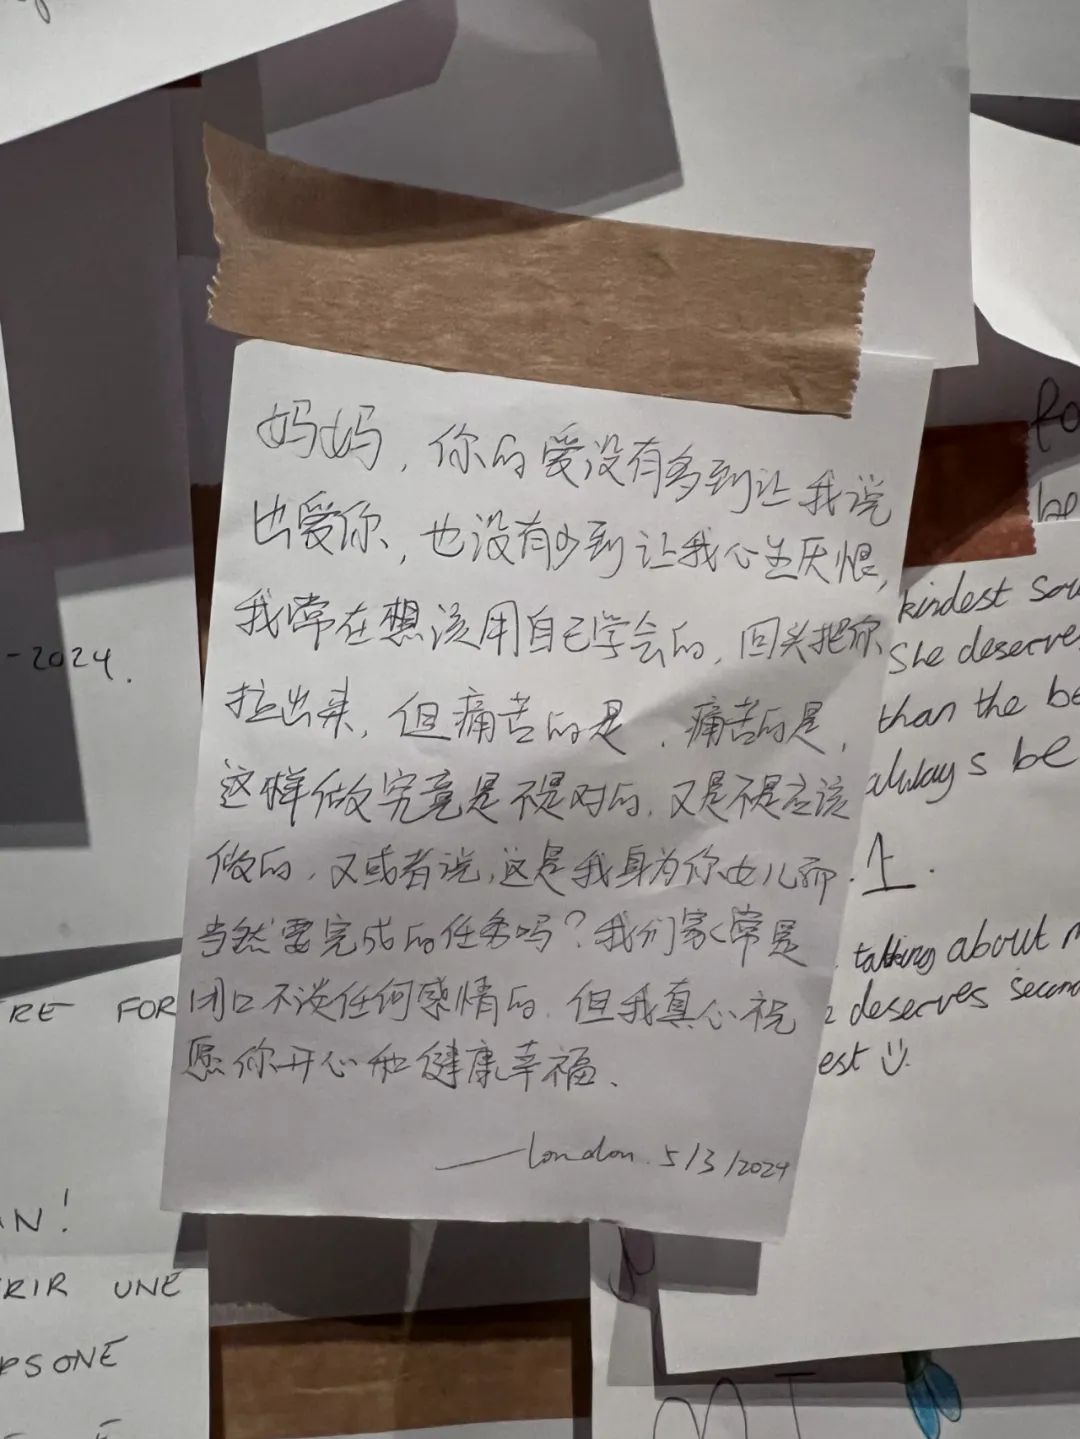 妈妈，你的爱没有多到让我说
出爱你，也没有少到让我心生厌恨，
我常在想该用自己学会的，回头把你
拉出来，但痛苦的是，痛苦的是，
这样做究竟是不是对的，又是不是应该
做的，又或者说，这是我身为你女儿而
当然要完成的任务吗？我们家常是
闭口不谈任何感情的，但我真心祝
愿你开心和健康幸福、
——London. 5/3/2024
-2024.
kindest
She deserves
than the
always be
1.
talking about
deserves
est
RE FOR
N!
RIR UNE